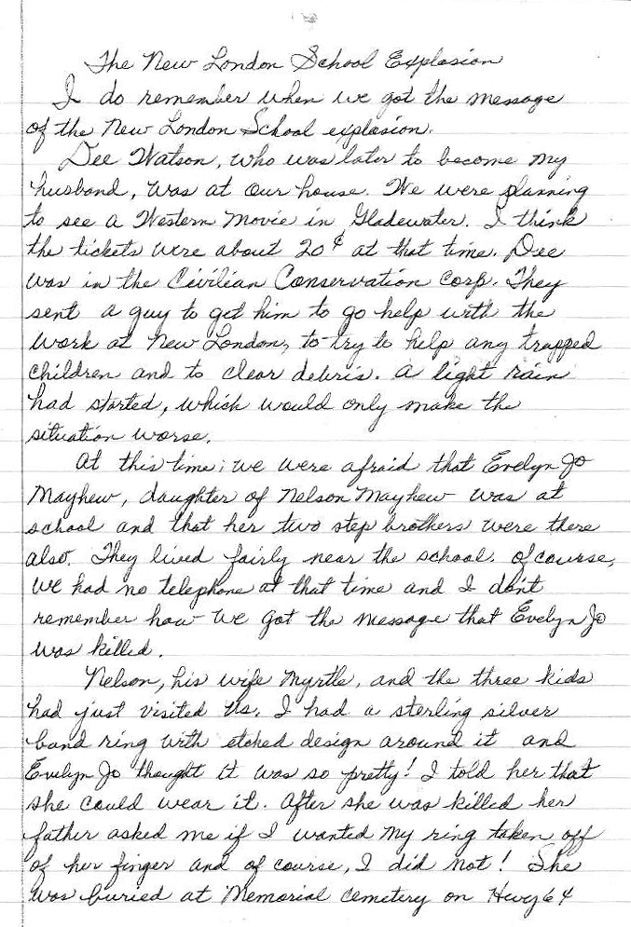 The New London School Explosion
I do remember when we got the message
of the New London School explosion.
Dee Watson, who was later to become my
husband, was at our house. We were planning
to see a Western Movie in Gladewater. I think
the tickets were about 20¢ at that time. Dee
was in the Civilian Conservation Corp. They
sent a guy to get him to go help with the
work at New London, to try to help any trapped
children and to clear debris. A light rain
had started, which would only make the
situation worse.
At this time; we were afraid that Evelyn Jo
Mayhew, daughter of Nelson Mayhew was at
school and that her two step brothers were there
also. They lived fairly near the school. Of course,
we had no telephone at that time and I don't
remember how we got the message that Evelyn Jo
was killed.
Nelson, his wife Myrtle, and the three kids
had just visited us. I had a sterling silver
band ring with etched design around it and
Evelyn Jo thought it was so pretty! I told her that
she could wear it. After she was killed her
father asked me if I wanted my ring taken off
of her finger and of course, I did not! She
was buried at Memorial Cemetery on Hwy 64